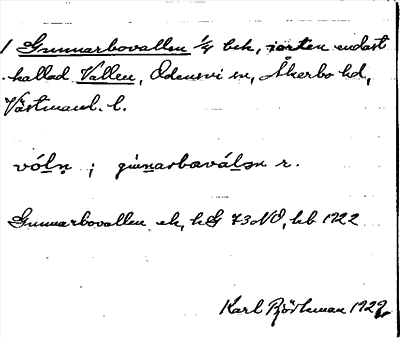 1 Gunnarbovallen 1/4 beb., i orten endast
kallad Vallen, Odensvi sn, Åkerbo hd,
Västmanl. l.
vóln̥ ; gúnarbωválən r.
Gunnarbovallen ek, kG 73 NO, hb 1922
Karl Björkman 1929